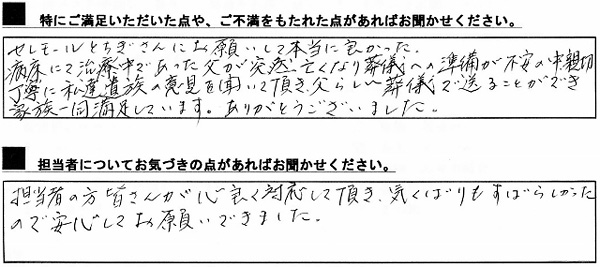 ■ 特にご満足いただいた点や、ご不満をもたれた点があればお聞かせください。
セレモールとちぎさんにお願いして本当に良かった。
病床にて治療中であった父が突然亡くなり葬儀への準備が不安の中、親切
丁寧に私達遺族の意見を聞いて頂き、父らしい葬儀で送ることができ
家族一同満足しています。ありがとうございました。
■ 担当者についてお気づきの点があればお聞かせください。
担当者の方皆さんが心良く対応して頂き、気くばりもすばらしかった
ので安心してお願いできました。